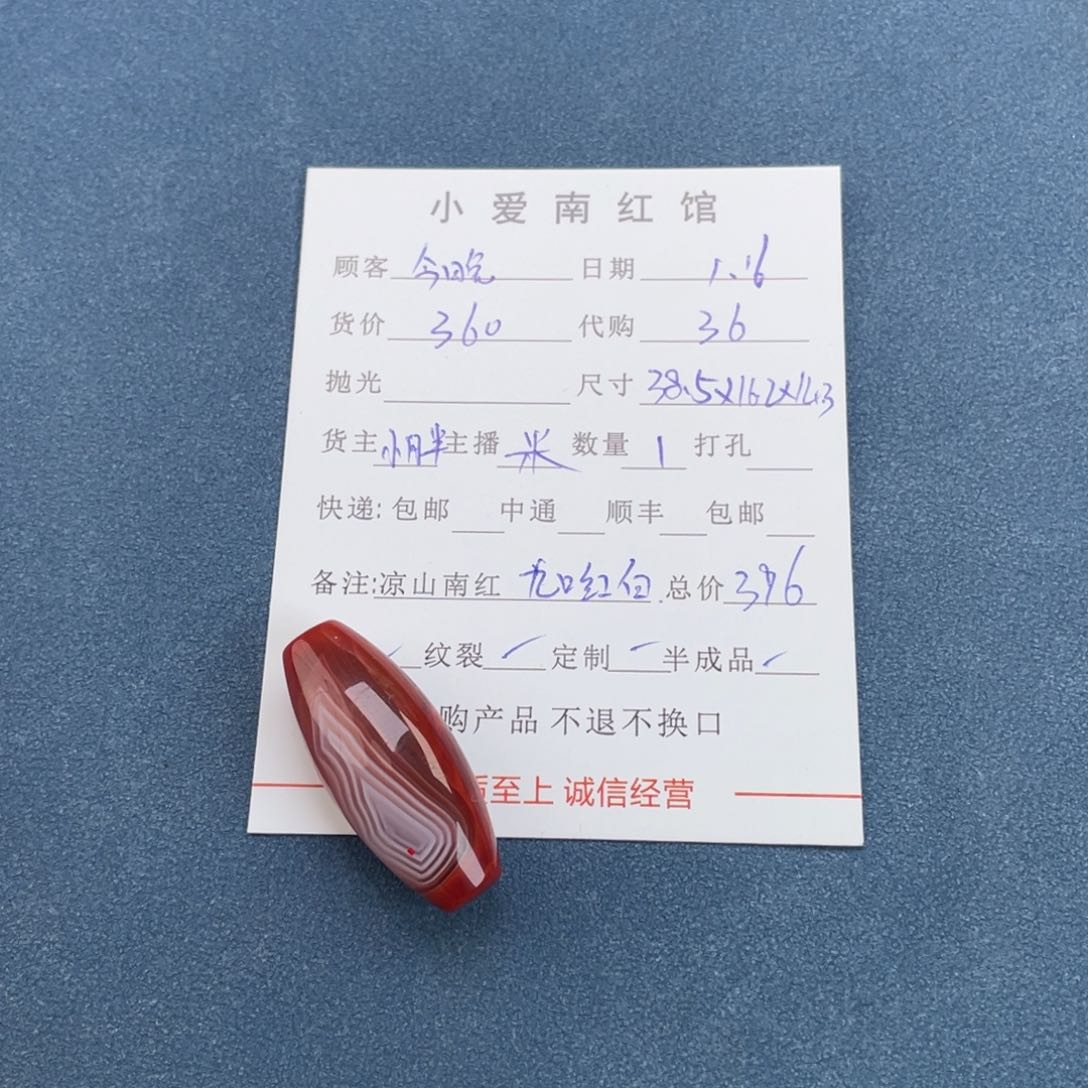 小爱南红馆
顾客 今日完 日期 1.16
货价 360 代购 36
抛光 尺寸 38.5X16.2X14.3
货主 小月半 主播 米 数量 1 打孔
快递: 包邮 中通 顺丰 包邮
备注: 凉山南红 九口红白 总价 396
纹裂 定制 半成品
购产品 不退不换口
至上 诚信经营